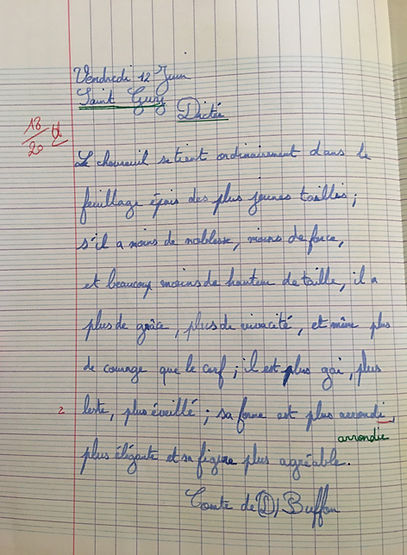 Vendredi 12 Juin
Saint Guy
Dictée
18/20
Le chevreuil se tient ordinairement dans le
feuillage épais des plus jeunes taillis ;
s'il a moins de noblesse, moins de force,
et beaucoup moins de hauteur de taille, il a
plus de grâce, plus de vivacité, et même plus
de courage que le cerf ; il est plus gai, plus
2 leste, plus éveillé ; sa forme est plus arrondi,
arrondie
plus élégante et sa figure plus agréable.
Comte de (D) Buffon